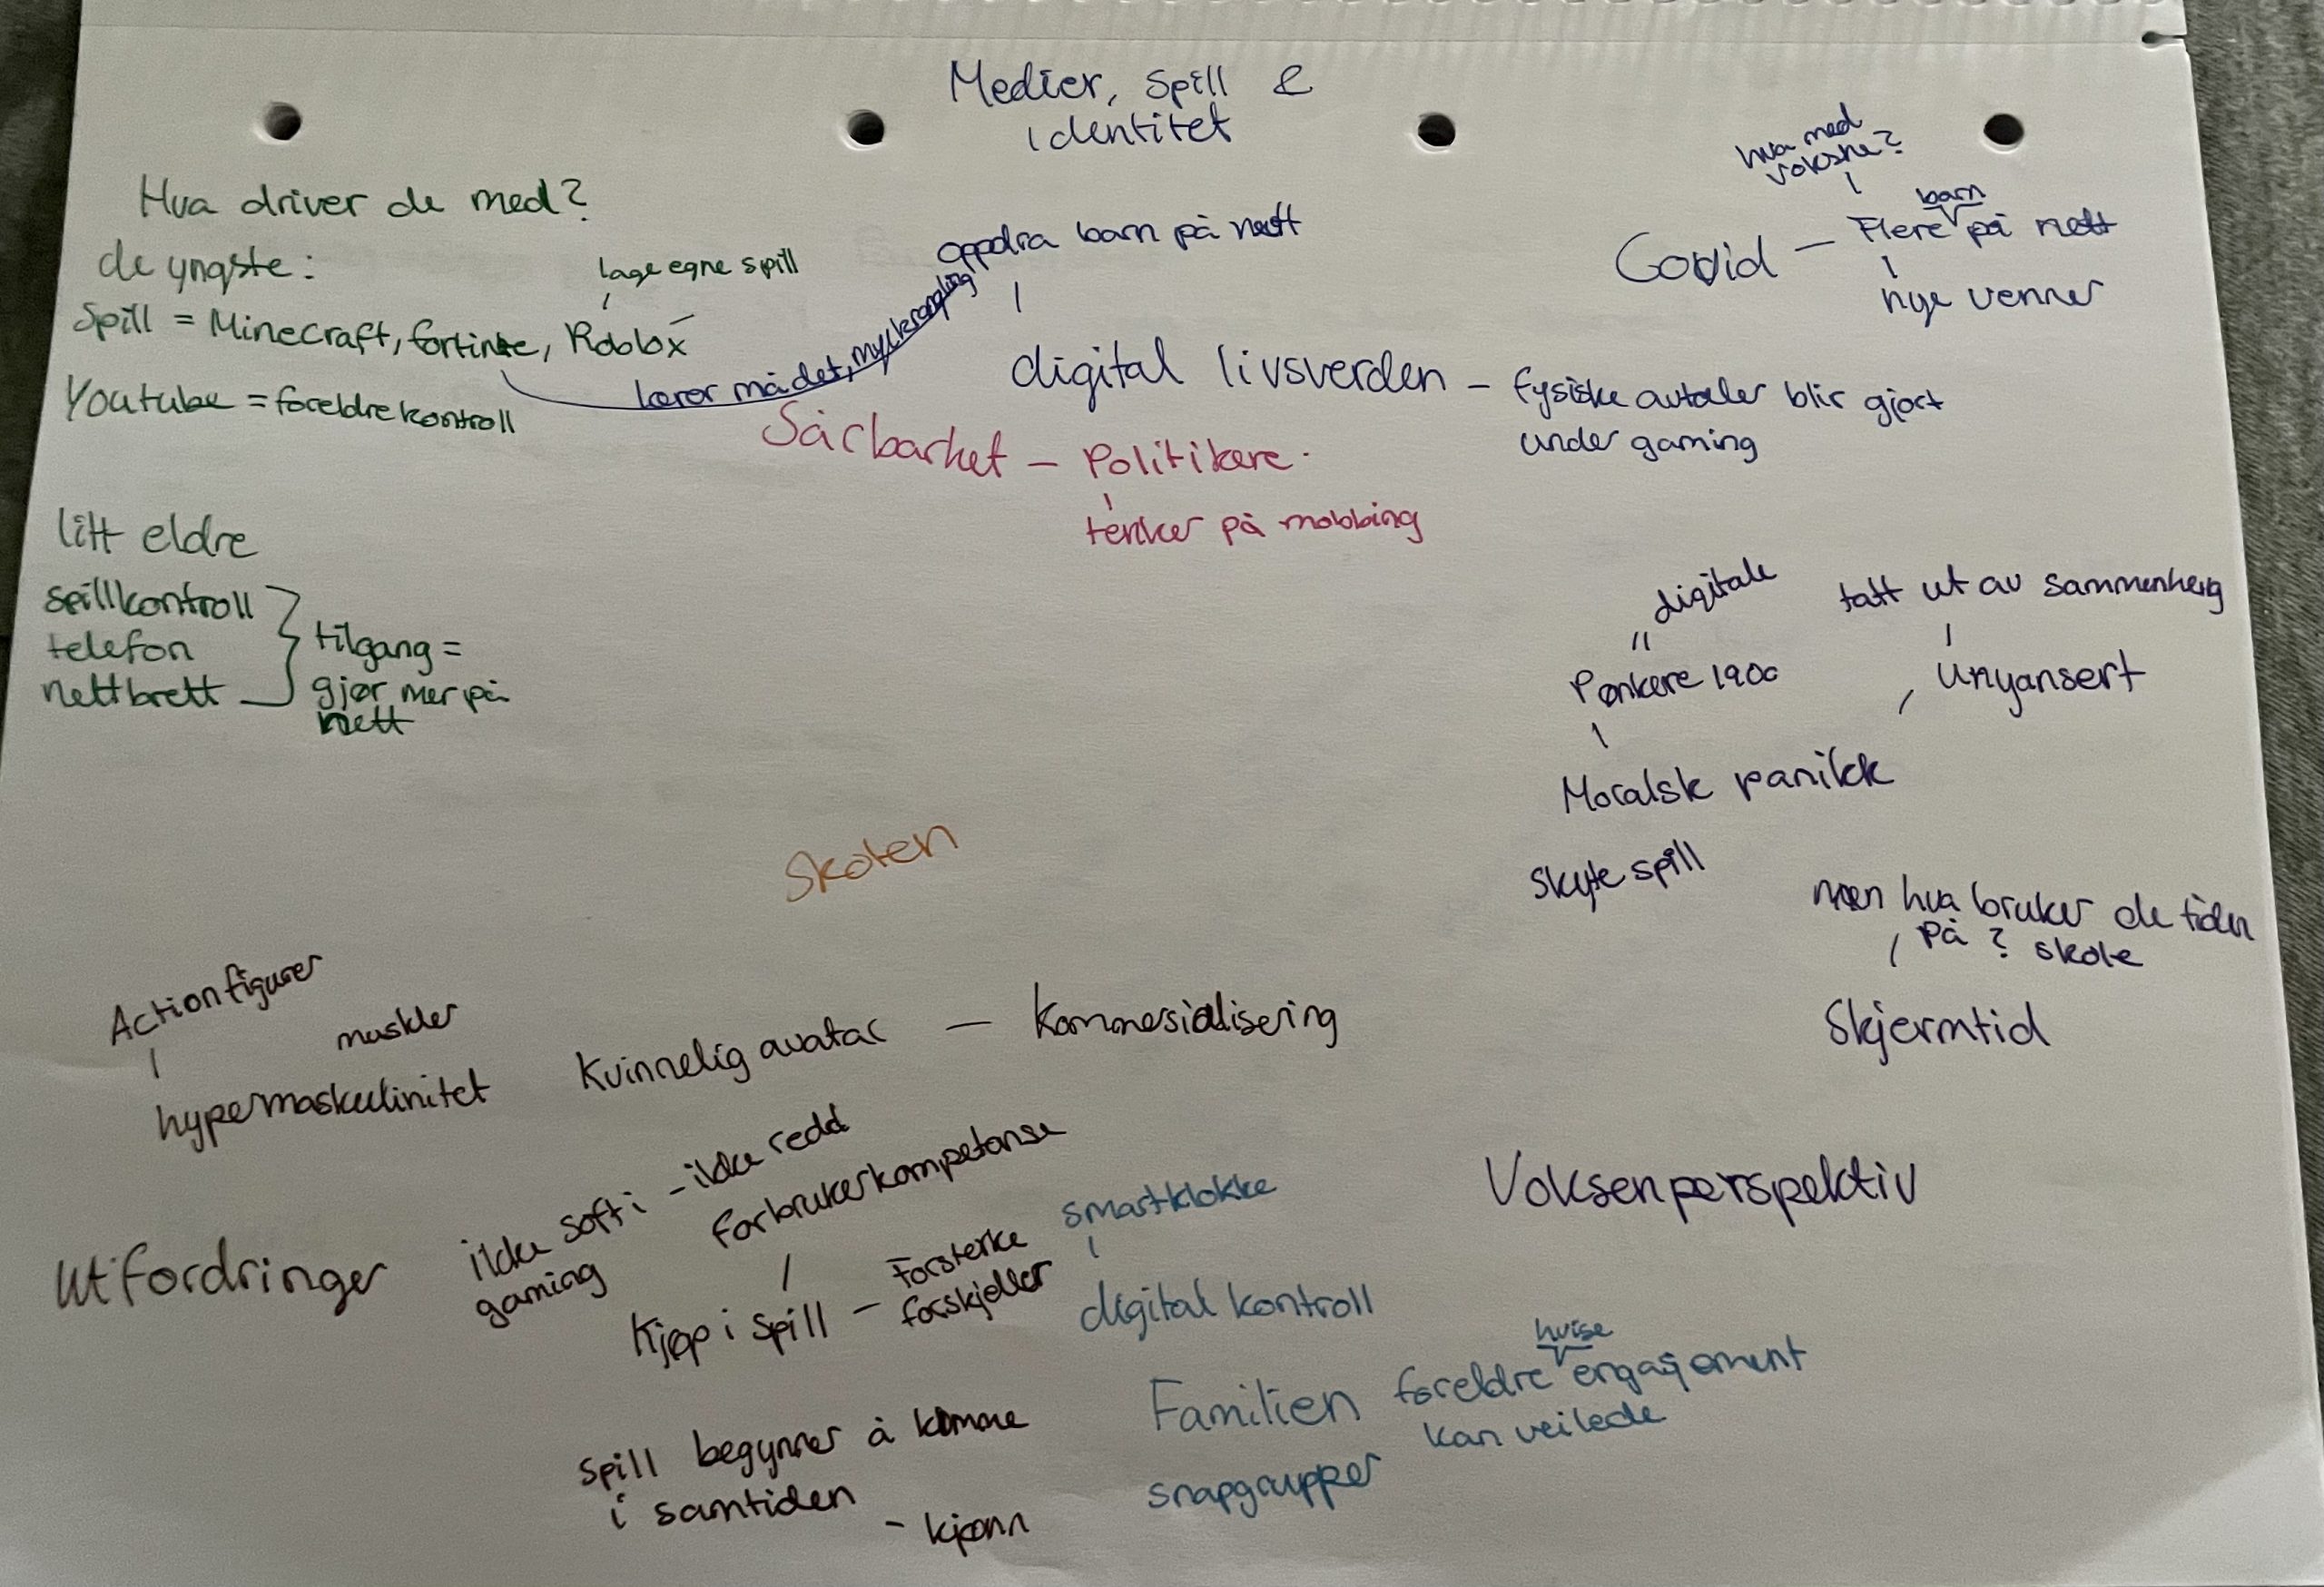 Medier, Spill &
identitet
Hva driver de med?
de yngste:
lage egne spill
Spill = Minecraft, fortinte, Roblox
Youtube = foreldrekontroll
lærer må det, mye krangling
oppdra barn på nett
digital livsverden - fysiske avtaler blir gjort
under gaming
hva med
voksne?
barn
Covid - Flere på nett
nye venner
Sårbarhet - Politikere.
tenker på mobbing
litt eldre
spillkontroll
telefon
nettbrett
tilgang =
gjør mer på
nett
digitale
Pønkere 1900
tatt ut av sammenheng
Unyansert
Moralsk panikk
Skyte spill
men hva bruker de tiden
på? skole
Skjermtid
Voksenperspektiv
Skolen
Actionfigurer
muskler
hypermaskulinitet
Kvinnelig avatar - Kommersialisering
Utfordringer
ikke soft i - ikke redd
gaming
forbrukerkompetanse
Kjøp i spill - Forsterke
forskjeller
spill begynner å komme
i samtiden
- kjønn
smartklokke
digital kontroll
hvise
Familien foreldre engasjement
kan veilede
snapgrupper